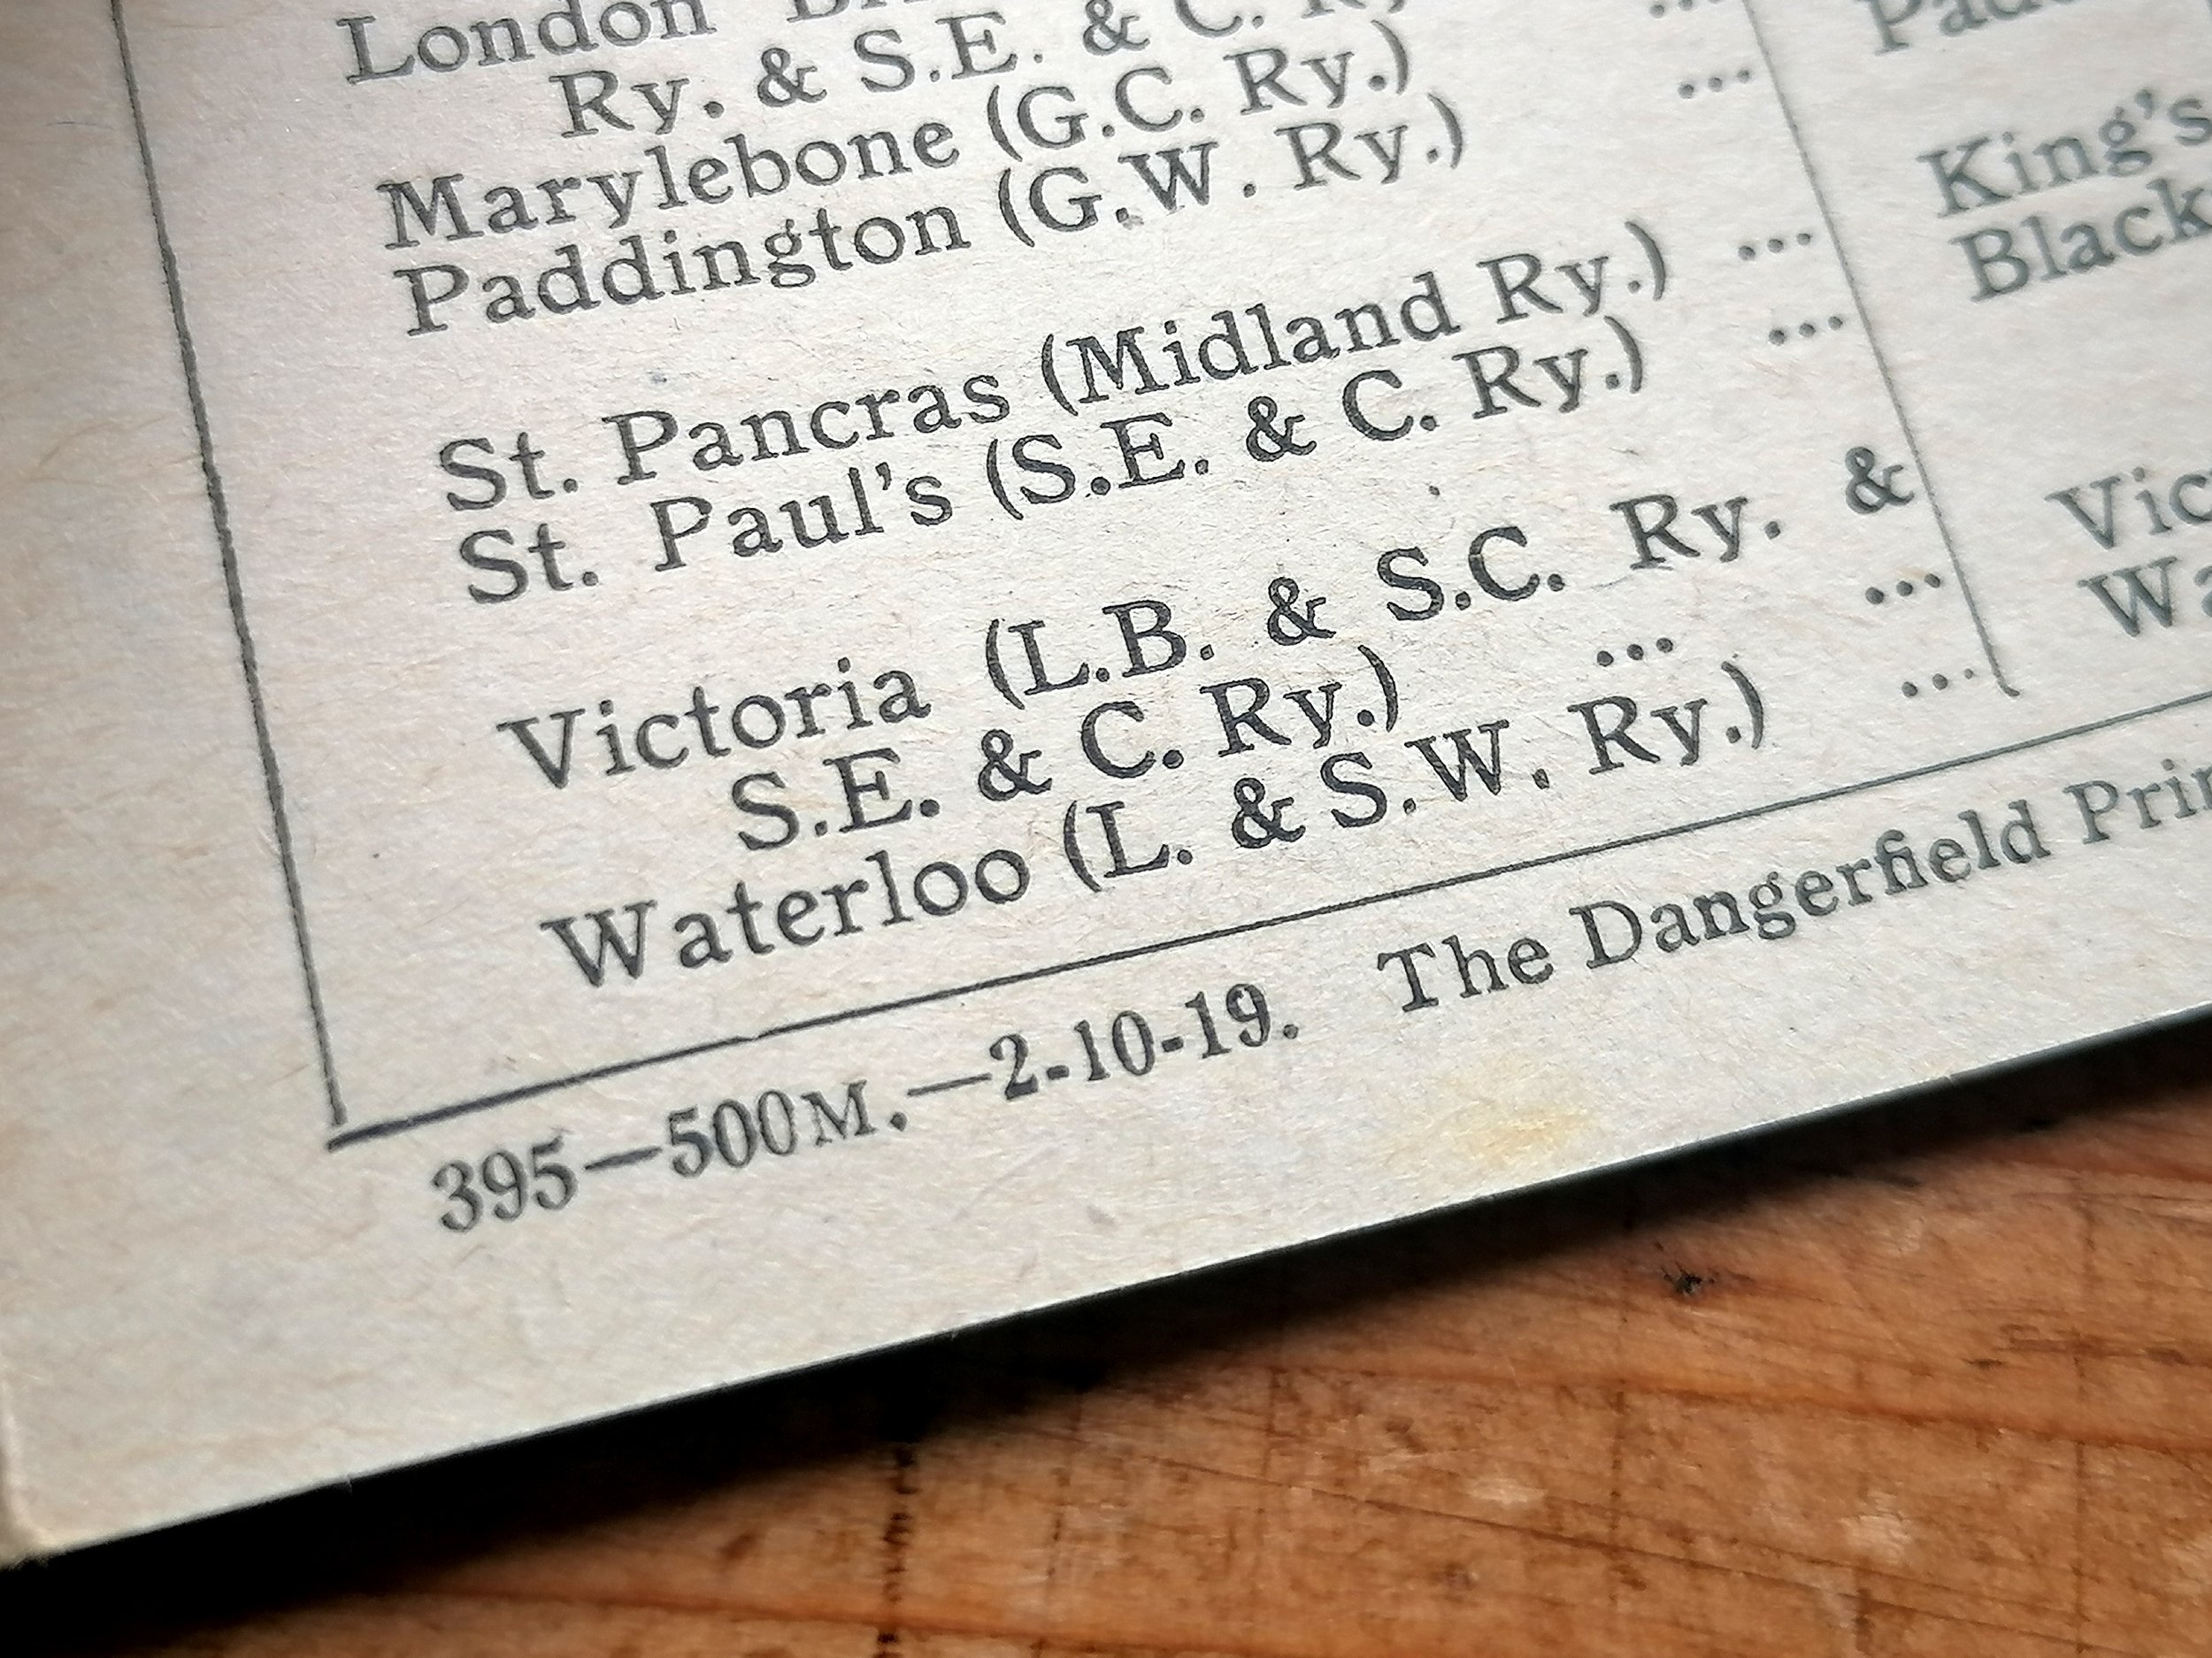 London
Ry. & S.E. & C.
Marylebone (G.C. Ry.) ...
Paddington (G.W. Ry.)
St. Pancras (Midland Ry.) ...
St. Paul's (S.E. & C. Ry.) ...
Victoria (L.B. & S.C. Ry. &
S.E. & C. Ry.) ... ...
Waterloo (L. & S.W. Ry.) ...
King's
395—500M.—2-10-19. The Dangerfield